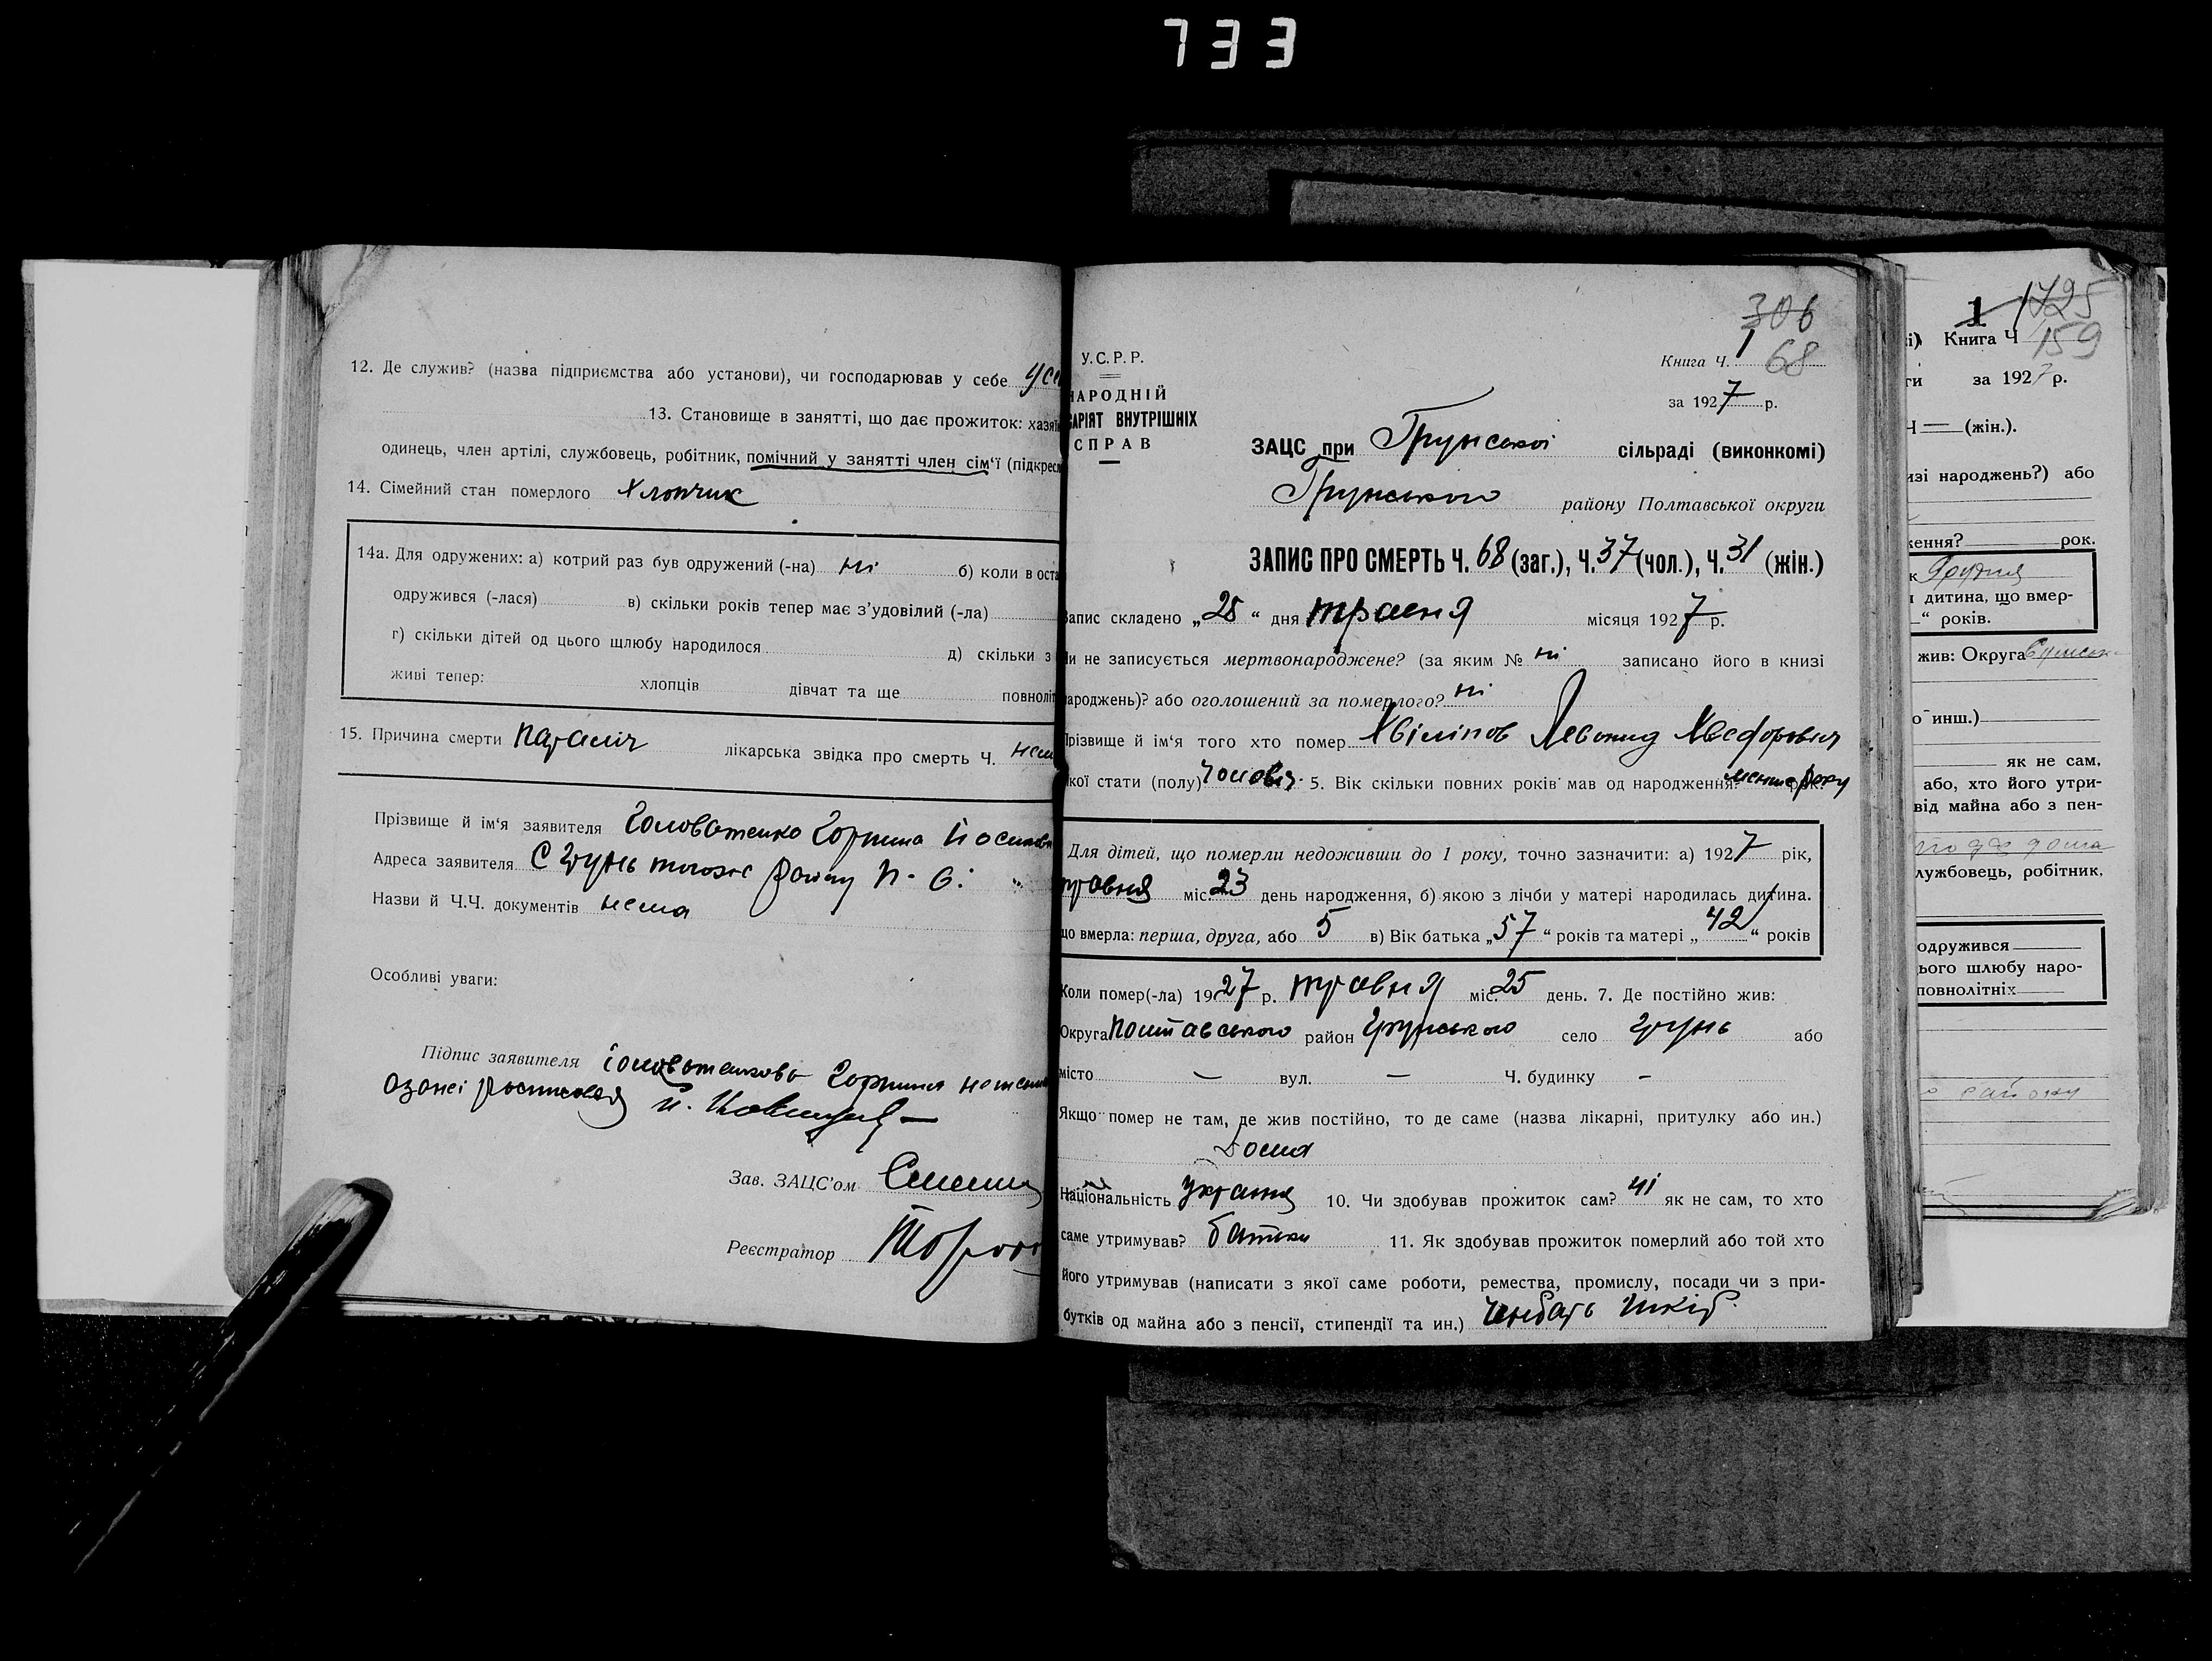 733
12. Де служив? (назва підприємства або установи), чи господарював у себе у се
13. Становище в занятті, що дає прожиток: хазяїн
одинець, член артілі, службовець, робітник, помічний у занятті член сім'ї (підкресл
14. Сімейний стан померлого Хлопчик
14а. Для одружених: а) котрий раз був одружений (-на) ні б) коли в оста
одружився (-лася) в) скільки років тепер має з'удовілий (-ла)
г) скільки дітей од цього шлюбу народилося д) скільки з
живі тепер: хлопців дівчат та ще повноліт
15. Причина смерти параліч лікарська звідка про смерть Ч. нем
Прізвище й ім'я заявителя Головатенко Горпина Йосипов
Адреса заявителя С Грунь того ж Району П. О.
Назви й Ч.Ч. документів нема
Особливі уваги:
Підпис заявителя Головатенкова Горпина
Зав. ЗАЦС'ом
Реєстратор
306
У.С.Р.Р.
Книга Ч. 1 68
НАРОДНІЙ
за 1927 р.
САРІЯТ ВНУТРІШНІХ
СПРАВ
ЗАЦС при Грунської сільраді (виконкомі)
Грунського району Полтавської округи
ЗАПИС ПРО СМЕРТЬ Ч. 68 (заг.), Ч. 37 (чол.), Ч. 31 (жін.)
Запис складено „25" дня травня місяця 1927 р.
Чи не записується мертвонароджене? (за яким № ні записано його в книзі
народжень)? або оголошений за померлого? ні
Прізвище й ім'я того хто помер Хвіліпов Леонид Хведорович
якої стати (полу) чоловіч. 5. Вік скільки повних років мав од народження? менше року
Для дітей, що померли недоживши до 1 року, точно зазначити: а) 1927 рік,
травня міс. 23 день народження, б) якою з лічби у матері народилась дитина.
що вмерла: перша, друга, або 5 в) Вік батька „57" років та матері „42" років
Коли помер(-ла) 1927 р. травня міс. 25 день. 7. Де постійно жив:
Округа Полтавського район Грунського село Грунь або
місто — вул. — Ч. будинку —
Якщо помер не там, де жив постійно, то де саме (назва лікарні, притулку або ин.)
Дома
Національність україня 10. Чи здобував прожиток сам? ні як не сам, то хто
саме утримував? батьки 11. Як здобував прожиток померлий або той хто
його утримував (написати з якої саме роботи, ремества, промислу, посади чи з при-
бутків од майна або з пенсії, стипендії та ин.) Чинбарь шкір.
1 1725
і) Книга Ч 159
ги за 1927 р.
Ч — (жін.).
изі народжень?) або
ження? рок.
к Грудня
дитина, що вмер-
“ років.
жив: Округа
о инш.)
як не сам,
або, хто його утри-
від майна або з пен-
лужбовець, робітник,
одружився
ього шлюбу наро-
повнолітніх